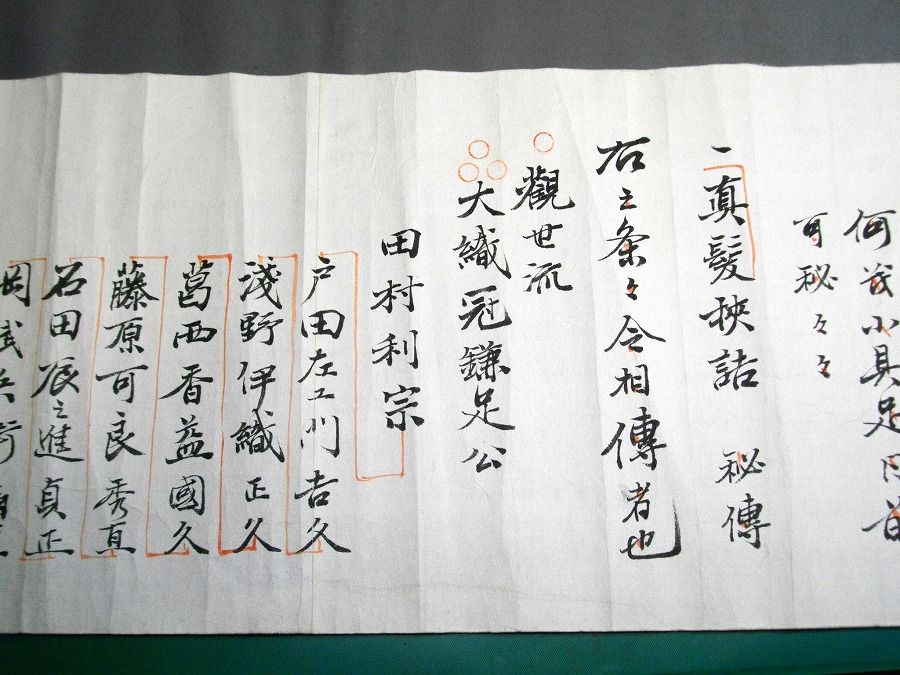 何茂小具足同前
可秘々々
一真髪挾詰 秘傳
右之条々令相傳者也
觀世流
大織冠鎌足公
田村利宗
戸田左工門吉久
淺野伊織正久
葛西香益國久
藤原可良秀直
石田辰之進貞正
岡武兵衛